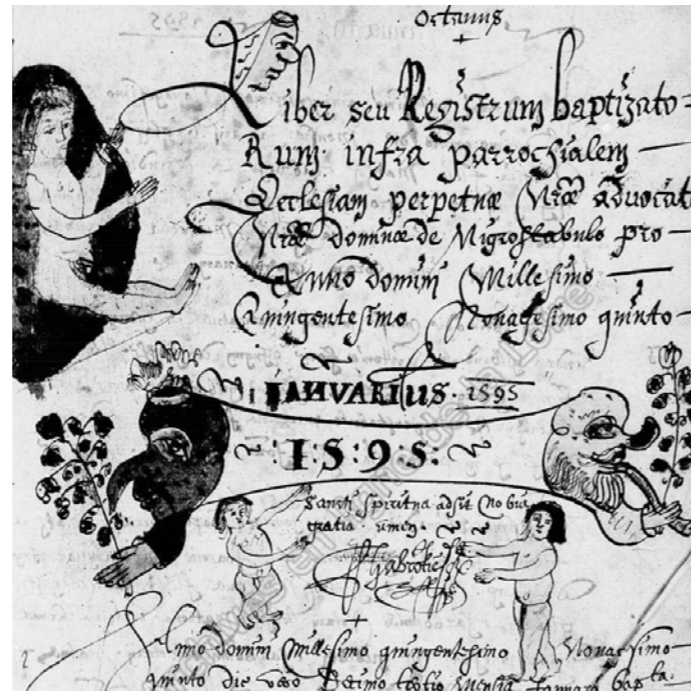 Octauus
Liber seu Registrum baptizato-
Rum infra parrochialem
Ecclesiam perpetuæ Nræ aduocat
Nræ dominæ de Nigrostabulo pro
Anno domini Millesimo
Quingentesimo Nonagesimo quinto
IANUARIUS. 1595
:1:5:9:5:
Sancti spiritua adsit Nobis
gratia amen
Anno domini Millesimo quingentesimo Nonagesimo
quinto die vero Decimo tertio Mensis Januarii bapta.